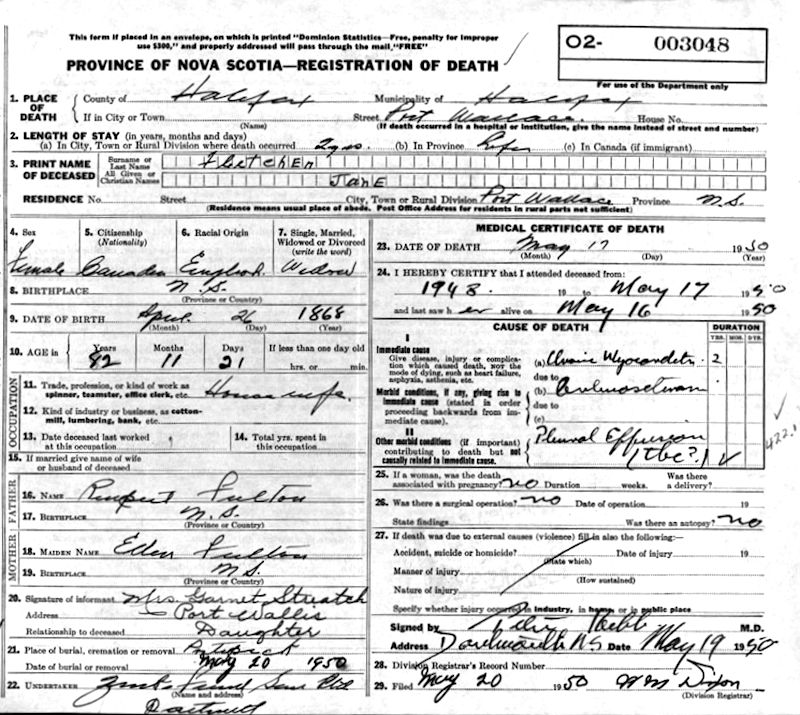 This form if placed in an envelope, on which is printed "Dominion Statistics—Free, penalty for improper
use $300," and properly addressed will pass through the mail, "FREE"
02- 003048
PROVINCE OF NOVA SCOTIA—REGISTRATION OF DEATH
For use of the Department only
1. PLACE OF DEATH
County of Halifax Municipality of Halifax
If in City or Town Street Port Wallace House No.
(Name) (If death occurred in a hospital or institution, give the name instead of street and number)
2. LENGTH OF STAY (in years, months and days)
(a) In City, Town or Rural Division where death occurred 2 yrs. (b) In Province Life (c) In Canada (if immigrant)
3. PRINT NAME OF DECEASED
Surname or Last Name FLETCHER
All Given or Christian Names JANE
RESIDENCE No. Street City, Town or Rural Division Port Wallace Province N.S.
(Residence means usual place of abode. Post Office Address for residents in rural parts not sufficient)
4. Sex 5. Citizenship (Nationality) 6. Racial Origin 7. Single, Married, Widowed or Divorced (write the word)
Female Canadian English Widow
8. BIRTHPLACE N.S.
(Province or Country)
9. DATE OF BIRTH April 26 1868
(Month) (Day) (Year)
10. AGE in Years Months Days If less than one day old
82 11 21 hrs. or min.
OCCUPATION
11. Trade, profession, or kind of work as spinner, teamster, office clerk, etc. Housewife
12. Kind of industry or business, as cotton-mill, lumbering, bank, etc.
13. Date deceased last worked at this occupation 14. Total yrs. spent in this occupation
15. If married give name of wife or husband of deceased
FATHER
16. NAME Rupert Fulton
17. BIRTHPLACE N.S.
(Province or Country)
MOTHER
18. MAIDEN NAME Ellen Fulton
19. BIRTHPLACE N.S.
(Province or Country)
20. Signature of informant Mrs. Garnet Streatch
Address Port Wallis
Relationship to deceased Daughter
21. Place of burial, cremation or removal
Date of burial or removal May 20 1950
22. UNDERTAKER
(Name and address)
MEDICAL CERTIFICATE OF DEATH
23. DATE OF DEATH May 17 1950
(Month) (Day) (Year)
24. I HEREBY CERTIFY that I attended deceased from:
1948 19 to May 17 1950
and last saw her alive on May 16 1950
CAUSE OF DEATH DURATION
YRS. MOS. DYS.
I
Immediate cause
Give disease, injury or complication which caused death, not the mode of dying, such as heart failure, asphyxia, asthenia, etc.
(a) 2
due to
Morbid conditions, if any, giving rise to immediate cause (stated in order proceeding backwards from immediate cause).
(b)
due to
(c)
II
Other morbid conditions (if important) contributing to death but not causally related to immediate cause.
Pleural Effusion
(tbc?)
422.1
25. If a woman, was the death associated with pregnancy? no Duration weeks. Was there a delivery?
26. Was there a surgical operation? no Date of operation 19
State findings Was there an autopsy? no
27. If death was due to external causes (violence) fill in also the following:—
Accident, suicide or homicide? Date of injury 19
(State which)
Manner of injury
(How sustained)
Nature of injury
Specify whether injury occurred in industry, in home, or in public place
Signed by M.D.
Address Dartmouth NS Date May 19 1950
28. Division Registrar's Record Number
29. Filed May 20 1950 Dixon
(Division Registrar)